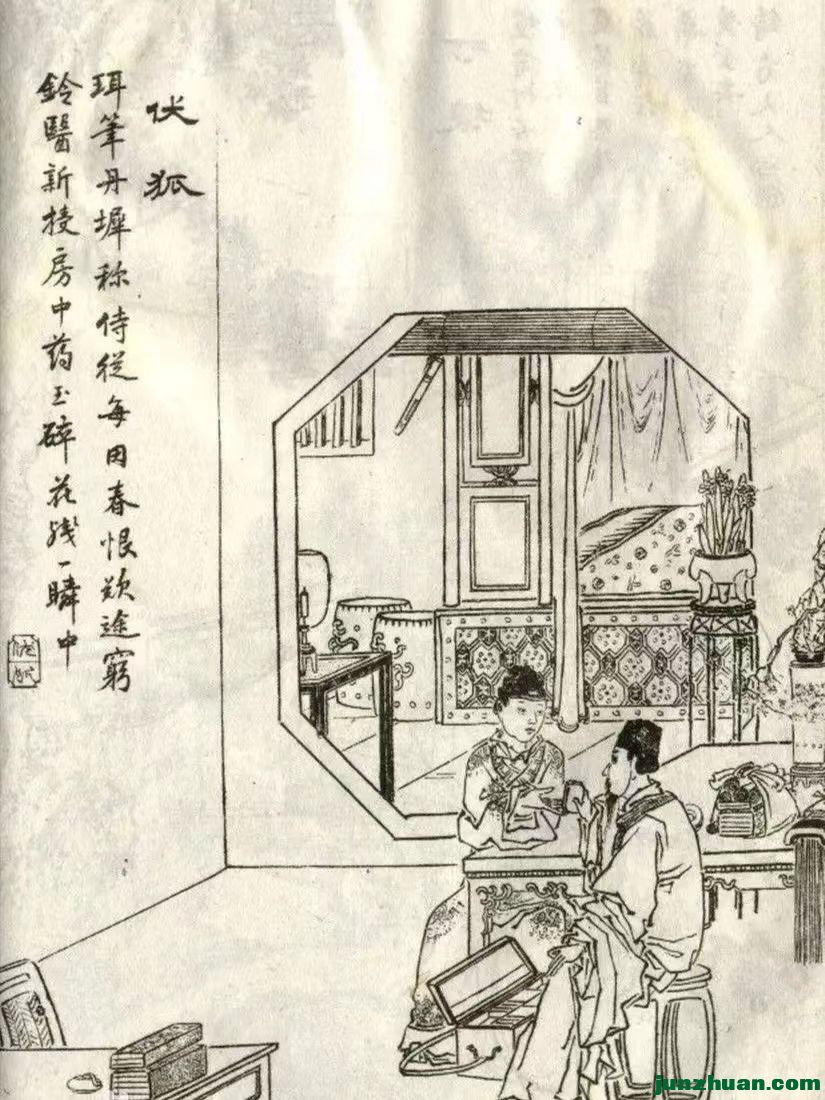 伏狐
珥筆丹墀称侍從每因春恨欺途窮
鈴醫新授房中药玉碎花残一瞬中
junzhuan.com